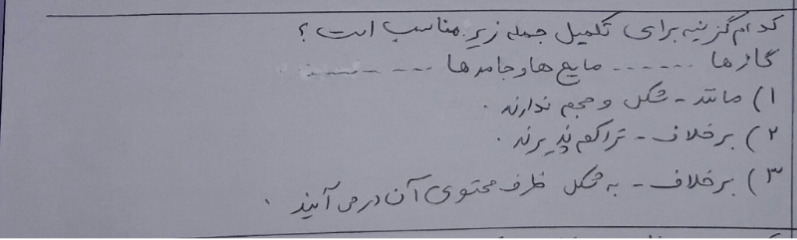 کدام گزینه برای تکمیل جمله زیر مناسب است؟
گازها ...... مایع ها و جامدها ......
۱) مانند - شکل و حجم ندارند.
۲) برخلاف - تراکم پذیرند.
۳) برخلاف - به شکل ظرف محتوی آن در می آیند.